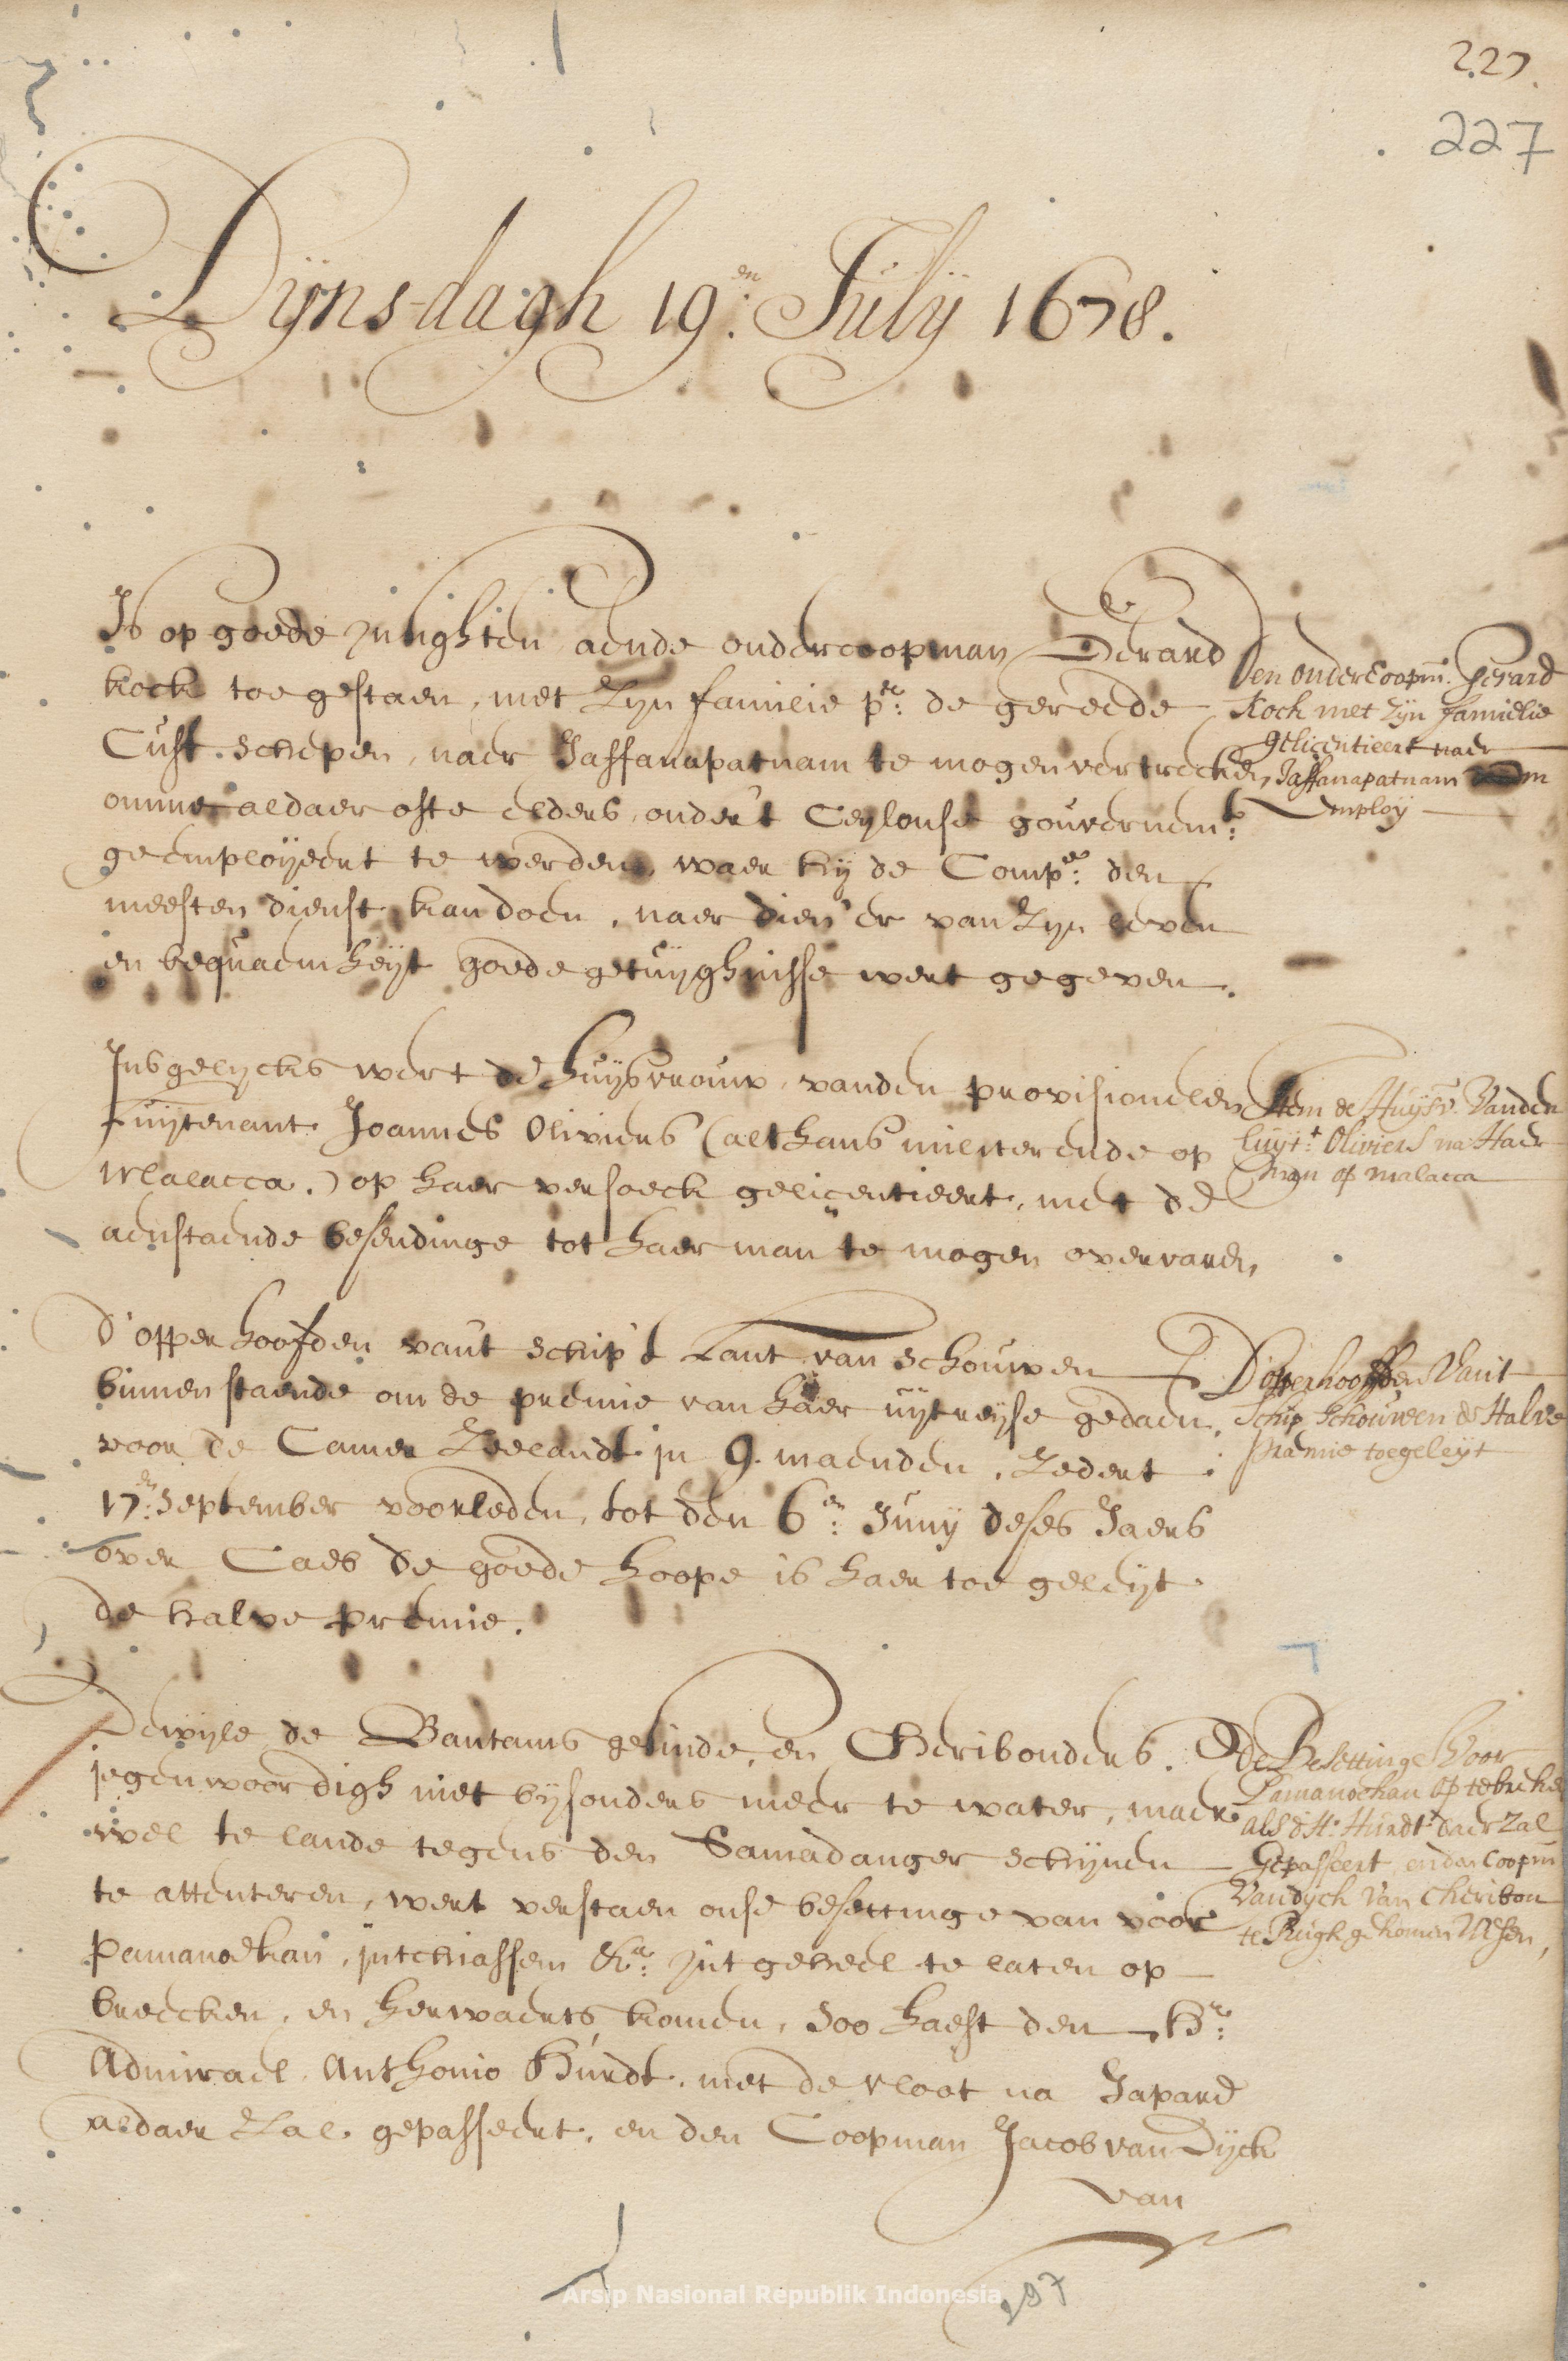 227.
227
Dijnsdagh 19:en July 1678.
Is op goede insighten aende ondercoopman Gerard
Kock toegestaen, met zijn familie pr: de gereede
Cust schepen, naer Jaffanapatnam te mogen vertrecken,
omme aldaer ofte elders, onder 't Ceylonse gouvernemt:
geemployeert te werden, waer hij de Compe: den
meesten dienst kan doen, naer dien 'er van zijn leven
en bequaemheijt goede getuijghnisse wert gegeven.
Den onderCoopm: Gerard
Kock met zijn familie
gelicentieert naer
Jaffanapatnam
Employ
Insgelijcks wert de huijsvrouw vanden provisionelen
Luijtenant Joannes Oliviers (althans militerende op
Malacca.) op haer versoeck gelicentieert, met de
aenstaende besendinge tot haer man te mogen overvaren,
Item de Huijsv: Vanden
luijt:t Oliviers na Haer
man op malacca
D' opperhoofden van't schip 't Lant van Schouwen
binnenstaende om de premie van haer uijtreijse gedaen,
voor de Camer Zeelandt in 9. maenden, zedert
17:en September voorleden, tot den 6:en Junij deses Jaers
over Caab de goede hoope is haer toegeleijt
de halve premie.
D'opperhoofden Van't
Schip Schouwen de Halve
præmie toegeleijt
Dewijle de Bantams gesinde, en Cheribonders.
jegenwoordigh niet bijsonders meer te water, maer
wel te lande tegens den Samadanger schijnen
te attenteren, wert verstaen onse besettinge van voor
Pamanoekan, intchiassem &a: int geheel te laten op
breecken, en herwaerts komen, soo haest den Hr:
Admirael Anthonio Hurdt, met de vloot na Japara
aldaer zal gepasseert, en den Coopman Jacob van Dijck
van
de Besettinge Voor
Pamanoekan op te breken
als d'Hr: Hurdt daer zal
Gepasseert, en den Coopm
Van dijck Van Cheribon
te Rugh gekomen Wesen,
Arsip Nasional Republik Indonesia
197